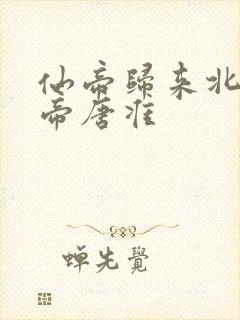 仙帝歸来北
帝唐淮
蝉先覺